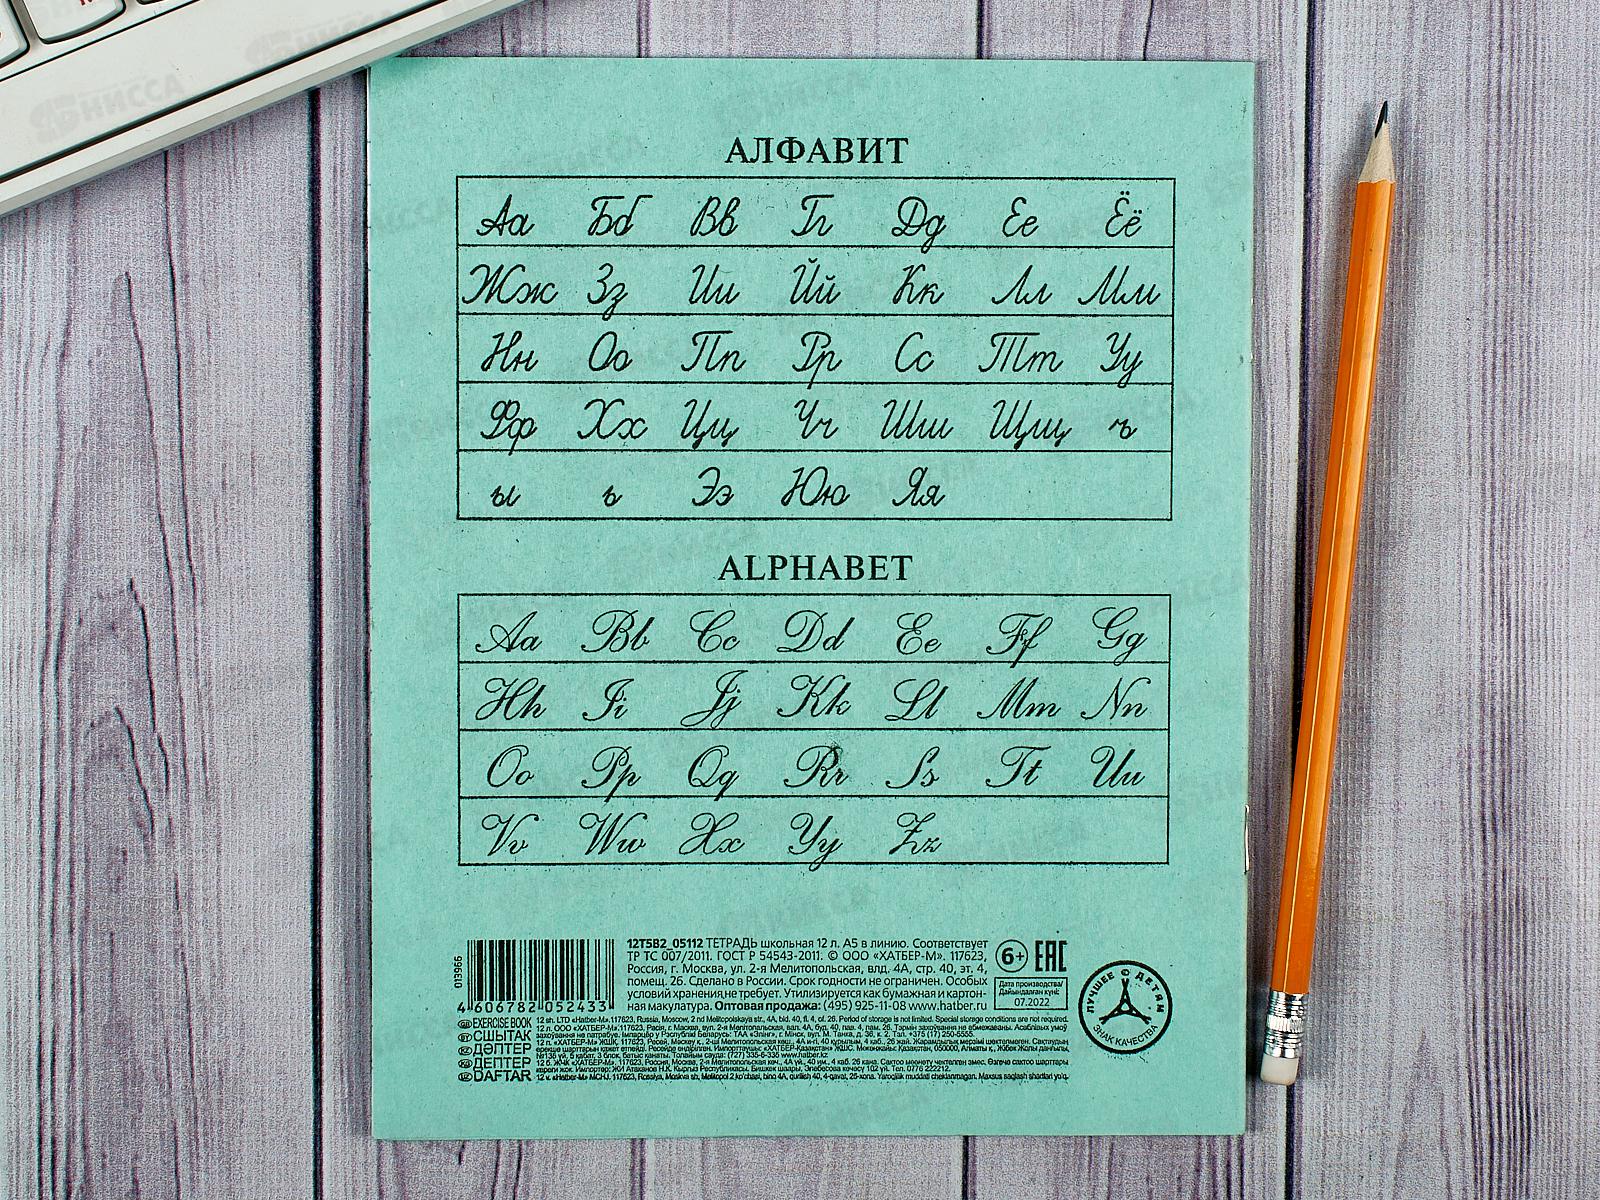 АЛФАВИТ
Аа Бб Вв Гг Дд Ее Ёё
Жж Зз Ии Йй Кк Лл Мм
Нн Оо Пп Рр Сс Тт Уу
Фф Хх Цц Чч Шш Щщ ъ
ы ь Ээ Юю Яя
ALPHABET
Aa Bb Cc Dd Ee Ff Gg
Hh Ii Jj Kk Ll Mm Nn
Oo Pp Qq Rr Ss Tt Uu
Vv Ww Xx Yy Zz
013966
4 606782 052433
12Т5В2_05112 ТЕТРАДЬ школьная 12 л. А5 в линию. Соответствует
ТР ТС 007/2011. ГОСТ Р 54543-2011. © ООО «ХАТБЕР-М». 117623,
Россия, г. Москва, ул. 2-я Мелитопольская, влд. 4А, стр. 40, эт. 4,
помещ. 26. Сделано в России. Срок годности не ограничен. Особых
условий хранения не требует. Утилизируется как бумажная и картон-
ная макулатура. Оптовая продажа: (495) 925-11-08 www.hatber.ru
6+ EAC
Дата производства/
Дайындалған күні:
07.2022
ЛУЧШЕЕ © ДЕТЯМ
ЗНАК КАЧЕСТВА
EXERCISE BOOK
СШЫТАК
ДӘПТЕР
ДЕПТЕР
DAFTAR
12 sh. LTD «Hatber-M».117623, Russia, Moscow, 2 nd Melitopolskaya str., 4A, bld. 40, fl. 4, of. 26. Period of storage is not limited. Special storage conditions are not required.
НИССА